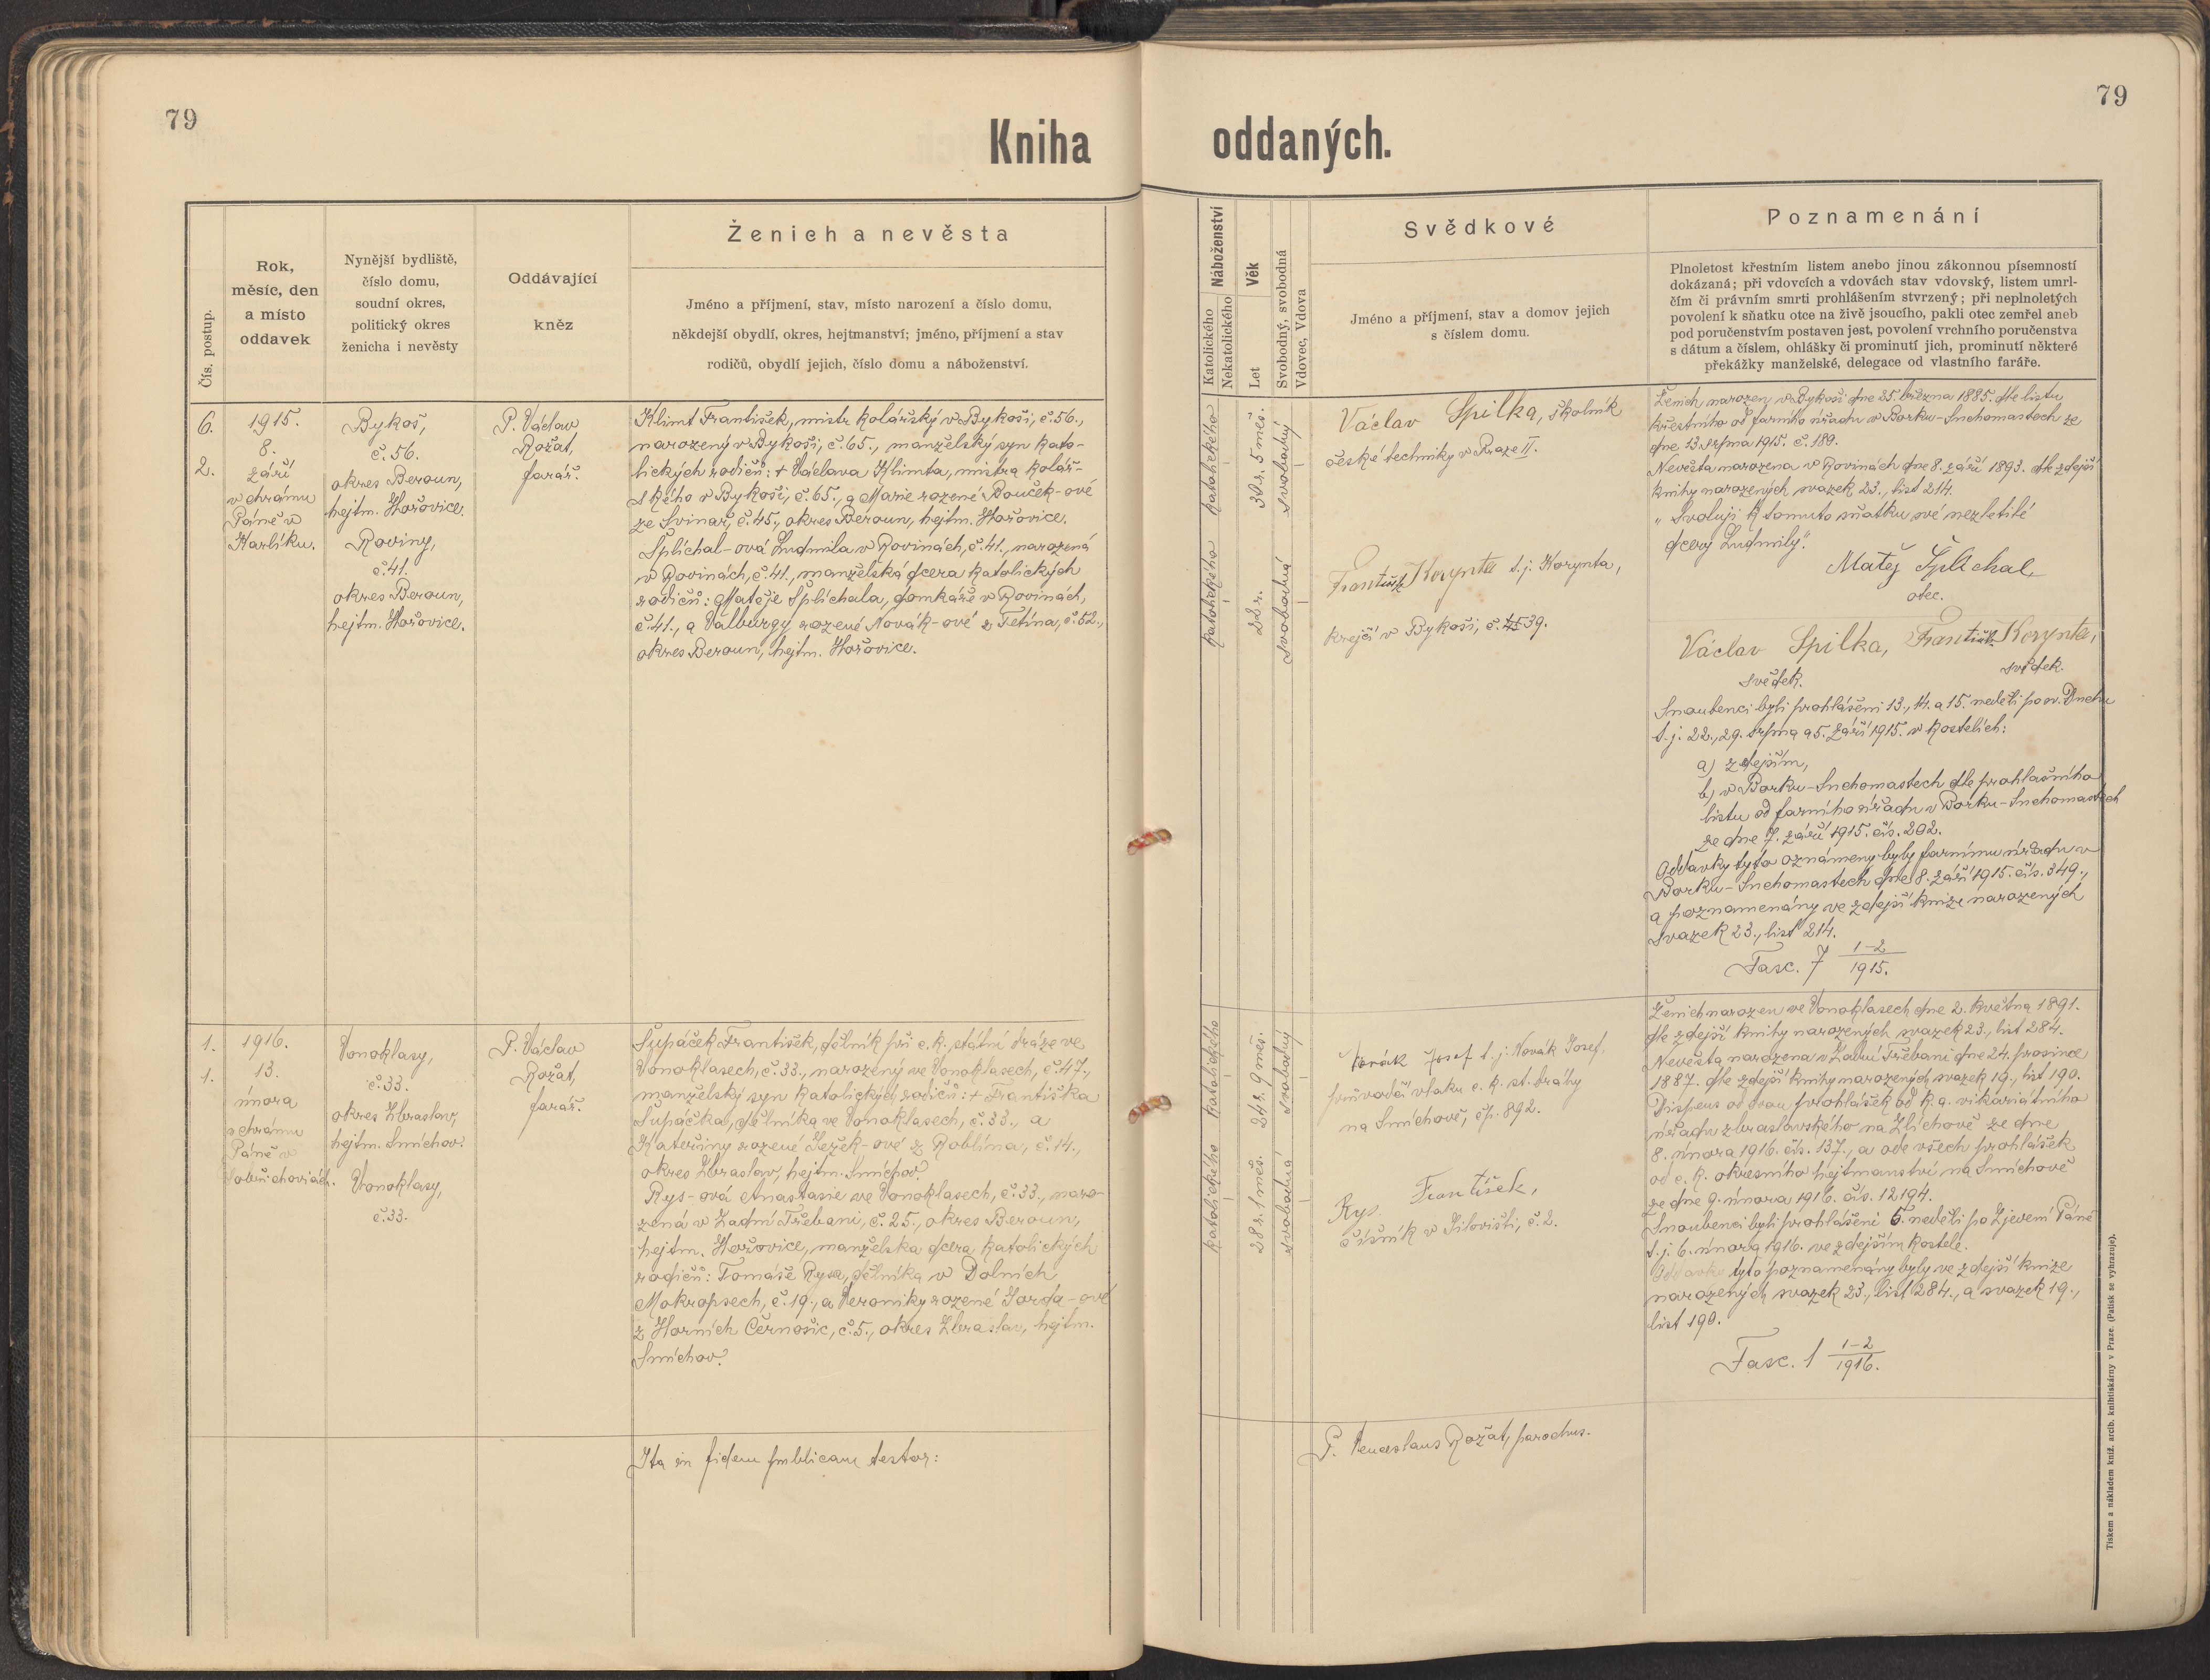 79
79
Kniha oddaných.
Čís. postup.
Rok,
měsíc, den
a místo
oddavek
Nynější bydliště,
číslo domu,
soudní okres,
politický okres
ženicha i nevěsty
Oddávající
kněz
Ženich a nevěsta
Jméno a příjmení, stav, místo narození a číslo domu,
někdejší obydlí, okres, hejtmanství; jméno, příjmení a stav
rodičů, obydlí jejich, číslo domu a náboženství.
Náboženství
Katolického
Nekatolického
Věk
Let
Svobodný, svobodná
Vdovec, Vdova
Svědkové
Jméno a příjmení, stav a domov jejich
s číslem domu.
Poznamenání
Plnoletost křestním listem anebo jinou zákonnou písemností
dokázaná; při vdovcích a vdovách stav vdovský, listem umrl-
čím či právním smrti prohlášením stvrzený; při neplnoletých
povolení k sňatku otce na živě jsoucího, pakli otec zemřel aneb
pod poručenstvím postaven jest, povolení vrchního poručenstva
s dátum a číslem, ohlášky či prominutí jich, prominutí některé
překážky manželské, delegace od vlastního faráře.
6.
2.
1915.
8.
září
v chrámu
Páně v
Karlíku.
Bykoš,
č. 56.
okres Beroun,
hejtm. Hořovice.
Roviny,
č. 41.
okres Beroun,
hejtm. Hořovice.
P. Václav
Rožát,
farář.
Klimt František, mistr kolářský v Bykoši, č. 56.,
narozený v Bykoši, č. 65., manželský syn kato-
lických rodičů: + Václava Klimta, mistra kolář-
ského v Bykoši, č. 65., a Marie rozené Bouček-ové
ze Svinař, č. 45., okres Beroun, hejtm. Hořovice.
Šplíchal-ová Ludmila v Rovinách, č. 41., narozená
v Rovinách, č. 41., manželská dcera katolických
rodičů: Matěje Šplíchala, domkáře v Rovinách,
č. 41., a Valburgy rozené Novák-ové z Tetína, č. 52.,
okres Beroun, hejtm. Hořovice.
katolického
30 r. 5 měs.
svobodný
katolického
22 r.
svobodná
Václav Spilka, školník
české techniky v Praze II.
František Korynta t. j. Korynta,
krejčí v Bykoši, č. 39.
Ženich narozen v Bykoši dne 25. března 1885. dle listu
křestního od farního úřadu v Borku-Suchomastech ze
dne 13. srpna 1915. č. 189.
Nevěsta narozena v Rovinách dne 8. září 1893. dle zdejší
knihy narozených svazek 23., list 214.
„Svoluji k tomuto sňatku své nezletilé
dcery Ludmily".
Matěj Šplíchal,
otec.
Václav Spilka, František Korynta,
svědek. svědek.
Snoubenci byli prohlášeni 13., 14. a 15. neděli po sv. Duchu
t. j. 22., 29. srpna a 5. září 1915. v kostelích:
a) zdejším,
b) v Borku-Suchomastech dle prohlašního
listu od farního úřadu v Borku-Suchomastech
ze dne 7. září 1915. čís. 202.
Oddavky tyto oznámeny byly farnímu úřadu v
Borku-Suchomastech dne 8. září 1915. čís. 349.,
a poznamenány ve zdejší knize narozených
svazek 23., list 214.
Fasc. 7 1-2/1915.
1.
1.
1916.
13.
února
v chrámu
Páně v
Dobřichovicích.
Vonoklasy,
č. 33.
okres Zbraslav,
hejtm. Smíchov.
Vonoklasy,
č. 33.
P. Václav
Rožát,
farář.
Šupáček František, dělník při c. k. státní dráze ve
Vonoklasech, č. 33., narozený ve Vonoklasech, č. 47.,
manželský syn katolických rodičů: + Františka
Šupáčka, dělníka ve Vonoklasech, č. 33., a
Kateřiny rozené Ježek-ové z Roblína, č. 14.,
okres Zbraslav, hejtm. Smíchov.
Rys-ová Anastasie ve Vonoklasech, č. 33., naro-
zená v Zadní Třebani, č. 25., okres Beroun,
hejtm. Hořovice, manželská dcera katolických
rodičů: Tomáše Rysa, dělníka v Dolních
Mokropsech, č. 19., a Veroniky rozené Jorda-ové
z Horních Černošic, č. 5., okres Zbraslav, hejtm.
Smíchov.
katolického
24 r. 9 měs.
svobodný
katolického
28 r. 1 měs.
svobodná
Novák Josef t. j. Novák Josef,
průvodčí vlaku c. k. st. dráhy
na Smíchově, čp. 892.
Rys František,
číšník v Jílovišti, č. 2.
Ženich narozen ve Vonoklasech dne 2. května 1891.
dle zdejší knihy narozených svazek 23., list 284.
Nevěsta narozena v Zadní Třebani dne 24. prosince
1887. dle zdejší knihy narozených svazek 19., list 190.
Dispens od dvou prohlášek od k. a. vikariátního
úřadu zbraslavského na Zlíchově ze dne
8. února 1916. čís. 137., a ode všech prohlášek
od c. k. okresního hejtmanství na Smíchově
ze dne 9. února 1916. čís. 12194.
Snoubenci byli prohlášeni 5. neděli po Zjevení Páně
t. j. 6. února 1916. ve zdejším kostele.
Oddavky tyto poznamenány byly ve zdejší knize
narozených svazek 23., list 284., a svazek 19.,
list 190.
Fasc. 1 1-2/1916.
Ita in fidem publicam testor:
P. Venceslaus Rožát, parochus.
Tiskem a nákladem kníž. arcib. knihtiskárny v Praze. (Patisk se vyhrazuje).